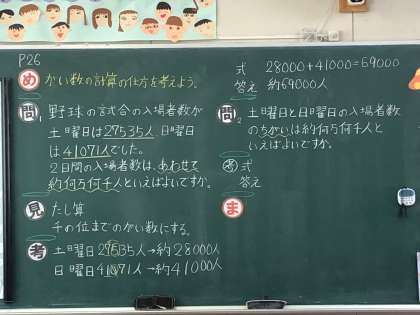 P26
め がい数の計算の仕方を考えよう。
問1 野球の試合の入場者数が
土曜日は27535人、日曜日
は41071人でした。
2日間の入場者数は、あわせて
約何万何千人といえばよいですか。
見 たし算
千の位までのがい数にする。
考 土曜日27535人→約28000人
日曜日41071人→約41000人
式 28000+41000=69000
答え 約69000人
問2 土曜日と日曜日の入場者数
のちがいは約何万何千人と
いえばよいですか。
考 式
答え
ま